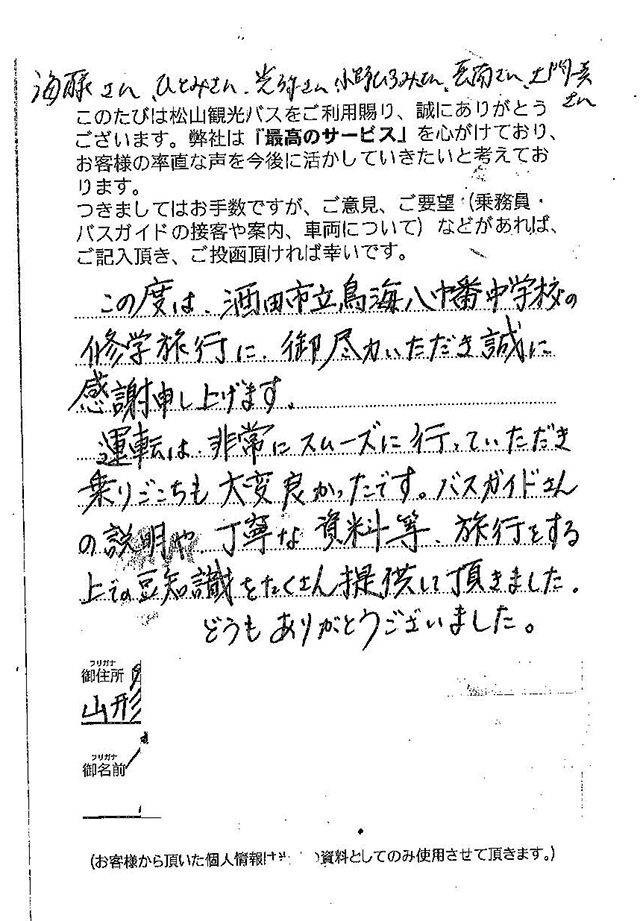 海藤さん、ひとみさん、光弥さん、小野ひろみさん、長南さん、土門真
さん
このたびは松山観光バスをご利用賜り、誠にありがとう
ございます。弊社は『最高のサービス』を心がけており、
お客様の率直な声を今後に活かしていきたいと考えてお
ります。
つきましてはお手数ですが、ご意見、ご要望（乗務員・
バスガイドの接客や案内、車両について）などがあれば、
ご記入頂き、ご投函頂ければ幸いです。
この度は、酒田市立鳥海八幡中学校の
修学旅行に、御尽力いただき誠に
感謝申し上げます。
運転は、非常にスムーズに行っていただき
乗りごこちも大変良かったです。バスガイドさん
の説明や、丁寧な資料等、旅行をする
上での豆知識をたくさん提供して頂きました。
どうもありがとうございました。
フリガナ
御住所
山形
フリガナ
御名前
（お客様から頂いた個人情報は 資料としてのみ使用させて頂きます。）